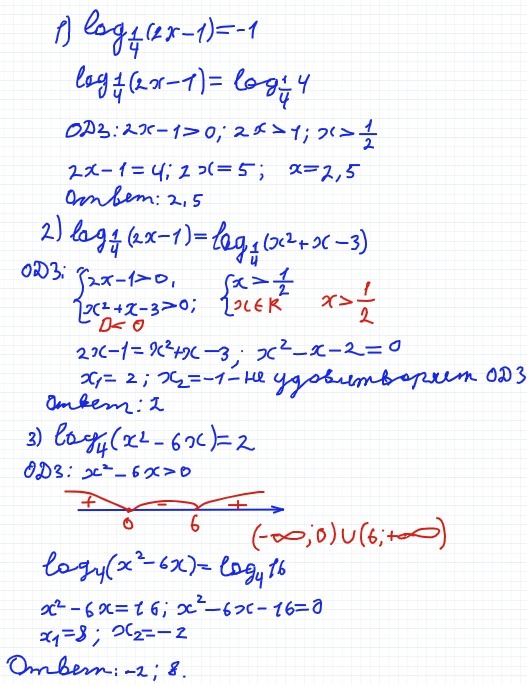 1) log_{1/4}(2x-1)=-1
log_{1/4}(2x-1)=log_{1/4} 4
ОДЗ: 2x-1>0; 2x>1; x>1/2
2x-1=4; 2x=5; x=2,5
Ответ: 2,5
2) log_{1/4}(2x-1)=log_{1/4}(x²+x-3)
ОДЗ: {2x-1>0, {x>1/2
{x²+x-3>0; {x∈R x>1/2
D<0
2x-1=x²+x-3; x²-x-2=0
x₁=2; x₂=-1-не удовлетворяет ОДЗ
Ответ: 2
3) log₄(x²-6x)=2
ОДЗ: x²-6x>0
+ - +
0 6
(-∞;0)∪(6;+∞)
log₄(x²-6x)=log₄16
x²-6x=16; x²-6x-16=0
x₁=8; x₂=-2
Ответ: -2; 8.